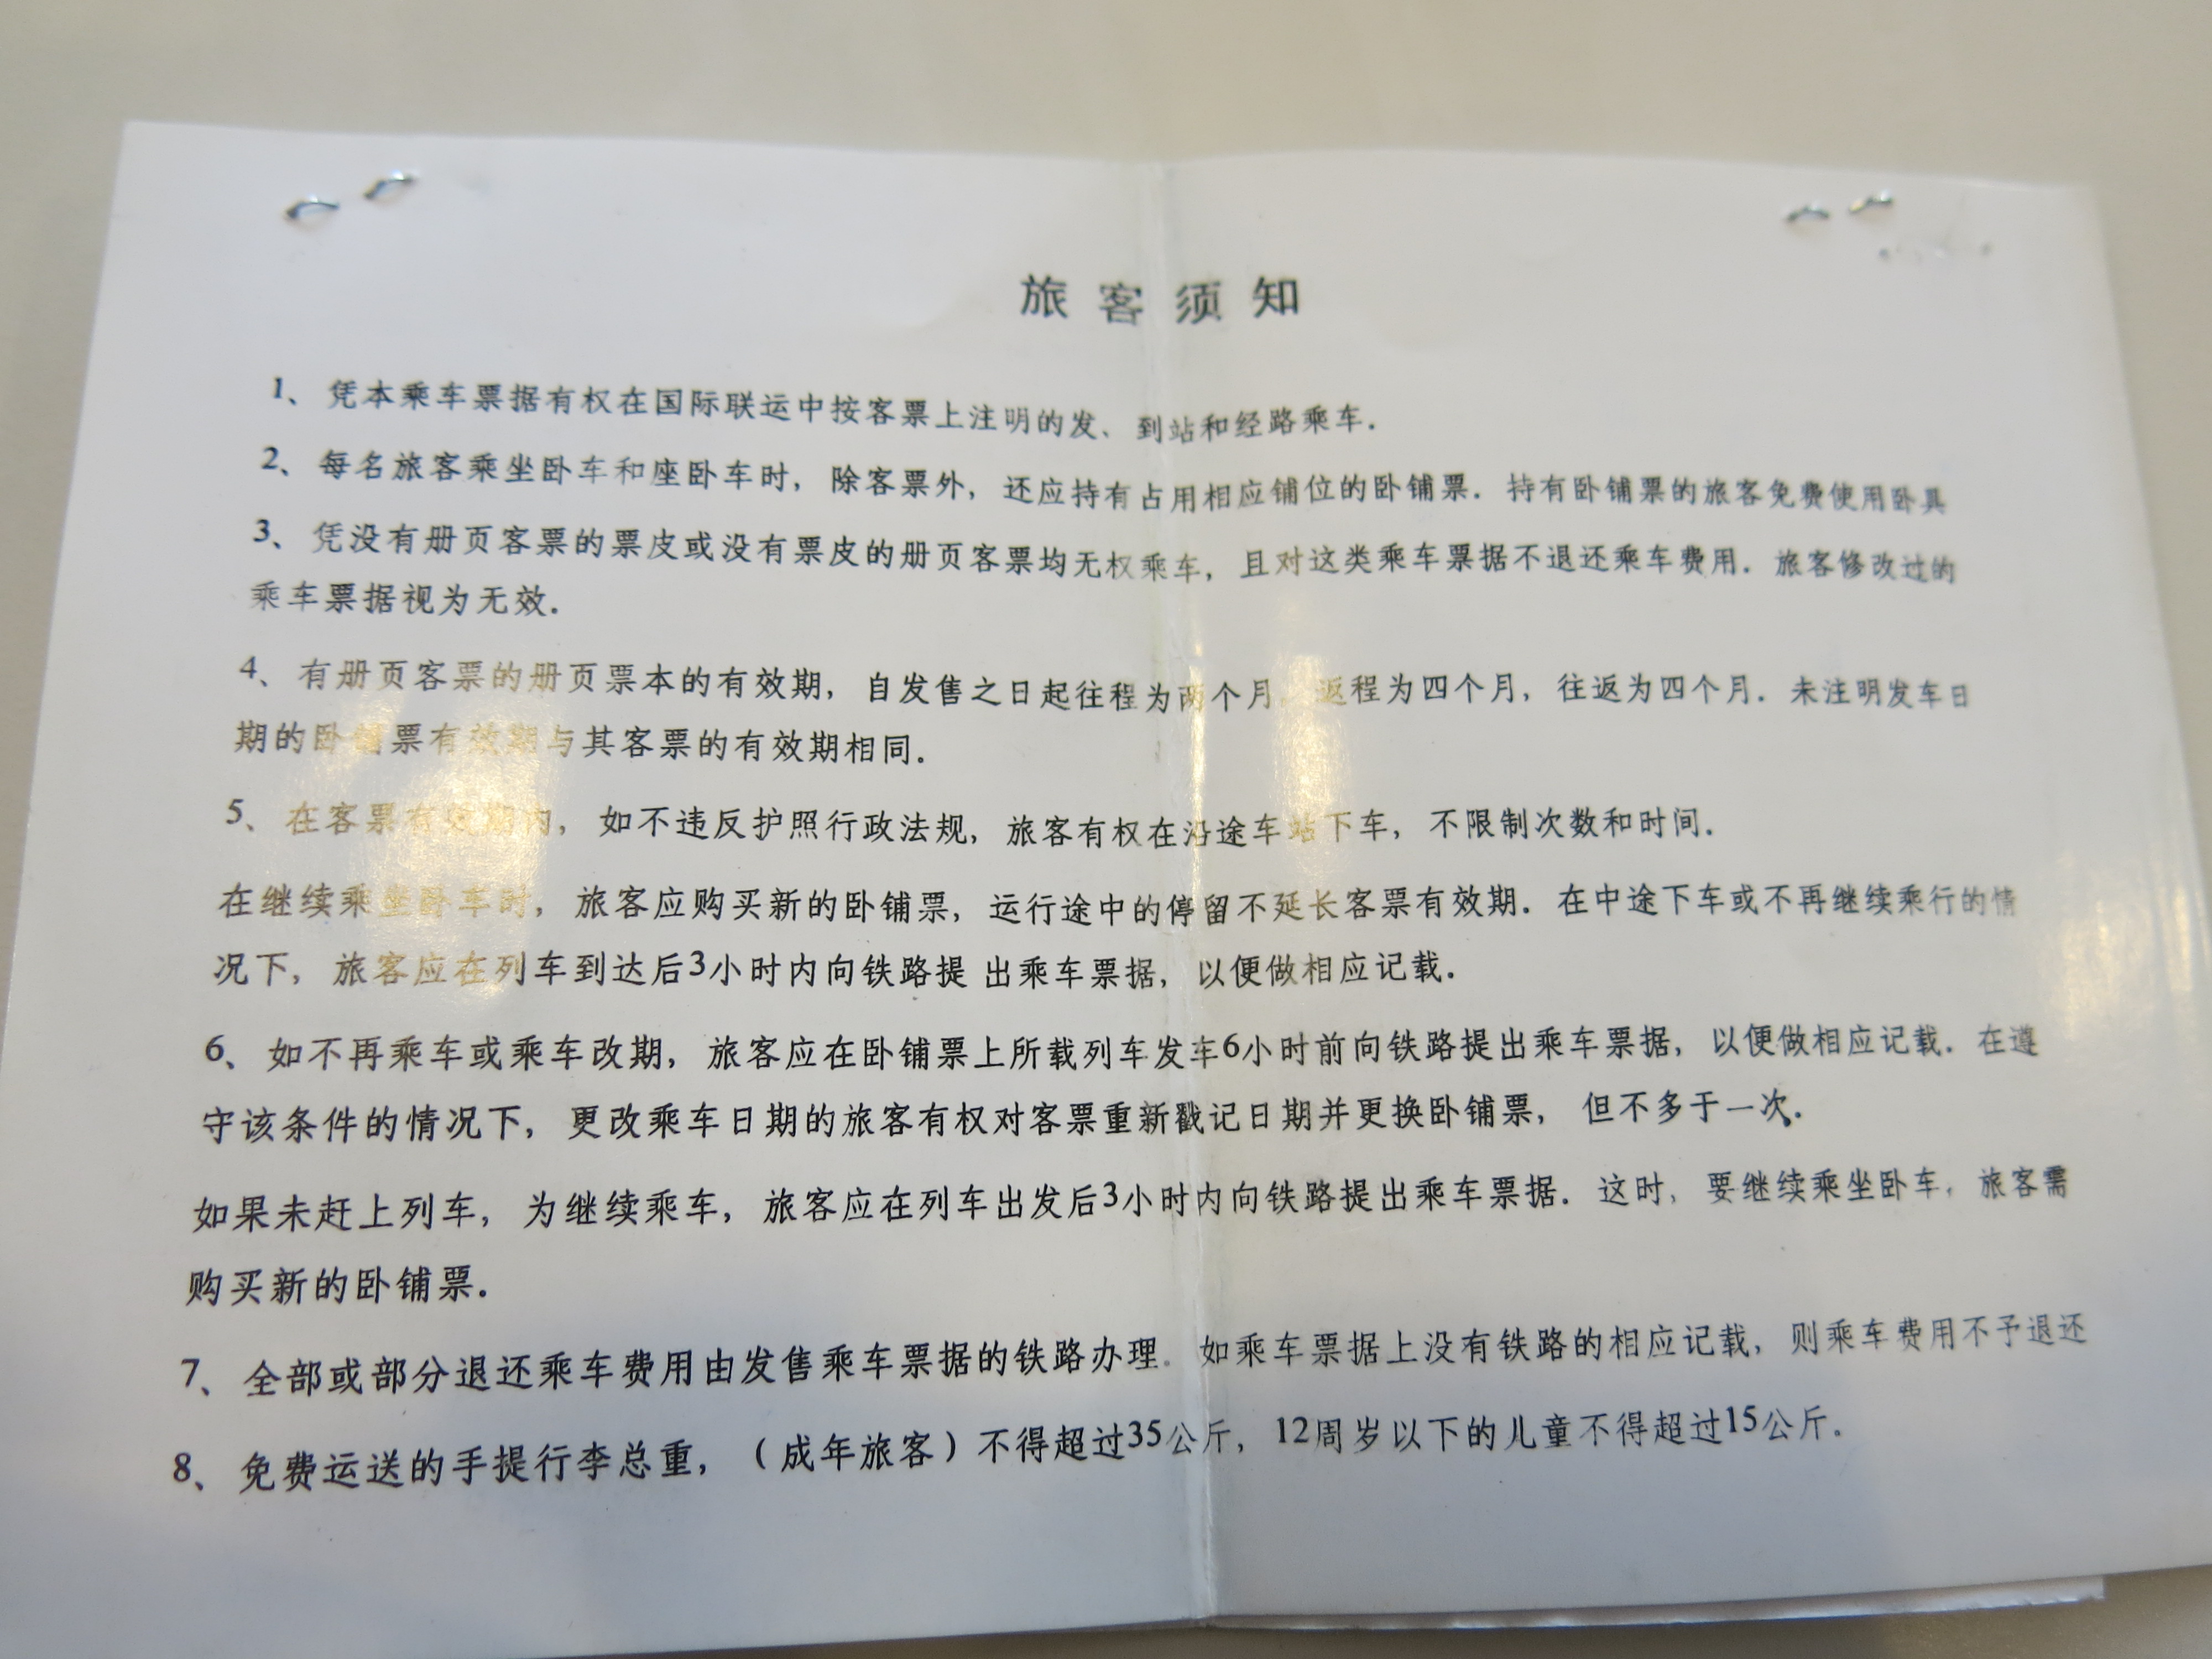 旅客须知
1、凭本乘车票据有权在国际联运中按客票上注明的发、到站和经路乘车.
2、每名旅客乘坐卧车和座卧车时,除客票外,还应持有占用相应铺位的卧铺票.持有卧铺票的旅客免费使用卧具
3、凭没有册页客票的票皮或没有票皮的册页客票均无权乘车,且对这类乘车票据不退还乘车费用.旅客修改过的
乘车票据视为无效.
4、有册页客票的册页票本的有效期,自发售之日起往程为两个月、返程为四个月,往返为四个月.未注明发车日
期的卧铺票有效期与其客票的有效期相同.
5、在客票有效期内,如不违反护照行政法规,旅客有权在沿途车站下车,不限制次数和时间.
在继续乘坐卧车时,旅客应购买新的卧铺票,运行途中的停留不延长客票有效期.在中途下车或不再继续乘行的情
况下,旅客应在列车到达后3小时内向铁路提 出乘车票据,以便做相应记载.
6、如不再乘车或乘车改期,旅客应在卧铺票上所载列车发车6小时前向铁路提出乘车票据,以便做相应记载.在遵
守该条件的情况下,更改乘车日期的旅客有权对客票重新戳记日期并更换卧铺票, 但不多于一次.
如果未赶上列车,为继续乘车,旅客应在列车出发后3小时内向铁路提出乘车票据.这时,要继续乘坐卧车,旅客需
购买新的卧铺票.
7、全部或部分退还乘车费用由发售乘车票据的铁路办理.如乘车票据上没有铁路的相应记载,则乘车费用不予退还
8、免费运送的手提行李总重,(成年旅客)不得超过35公斤,12周岁以下的儿童不得超过15公斤.